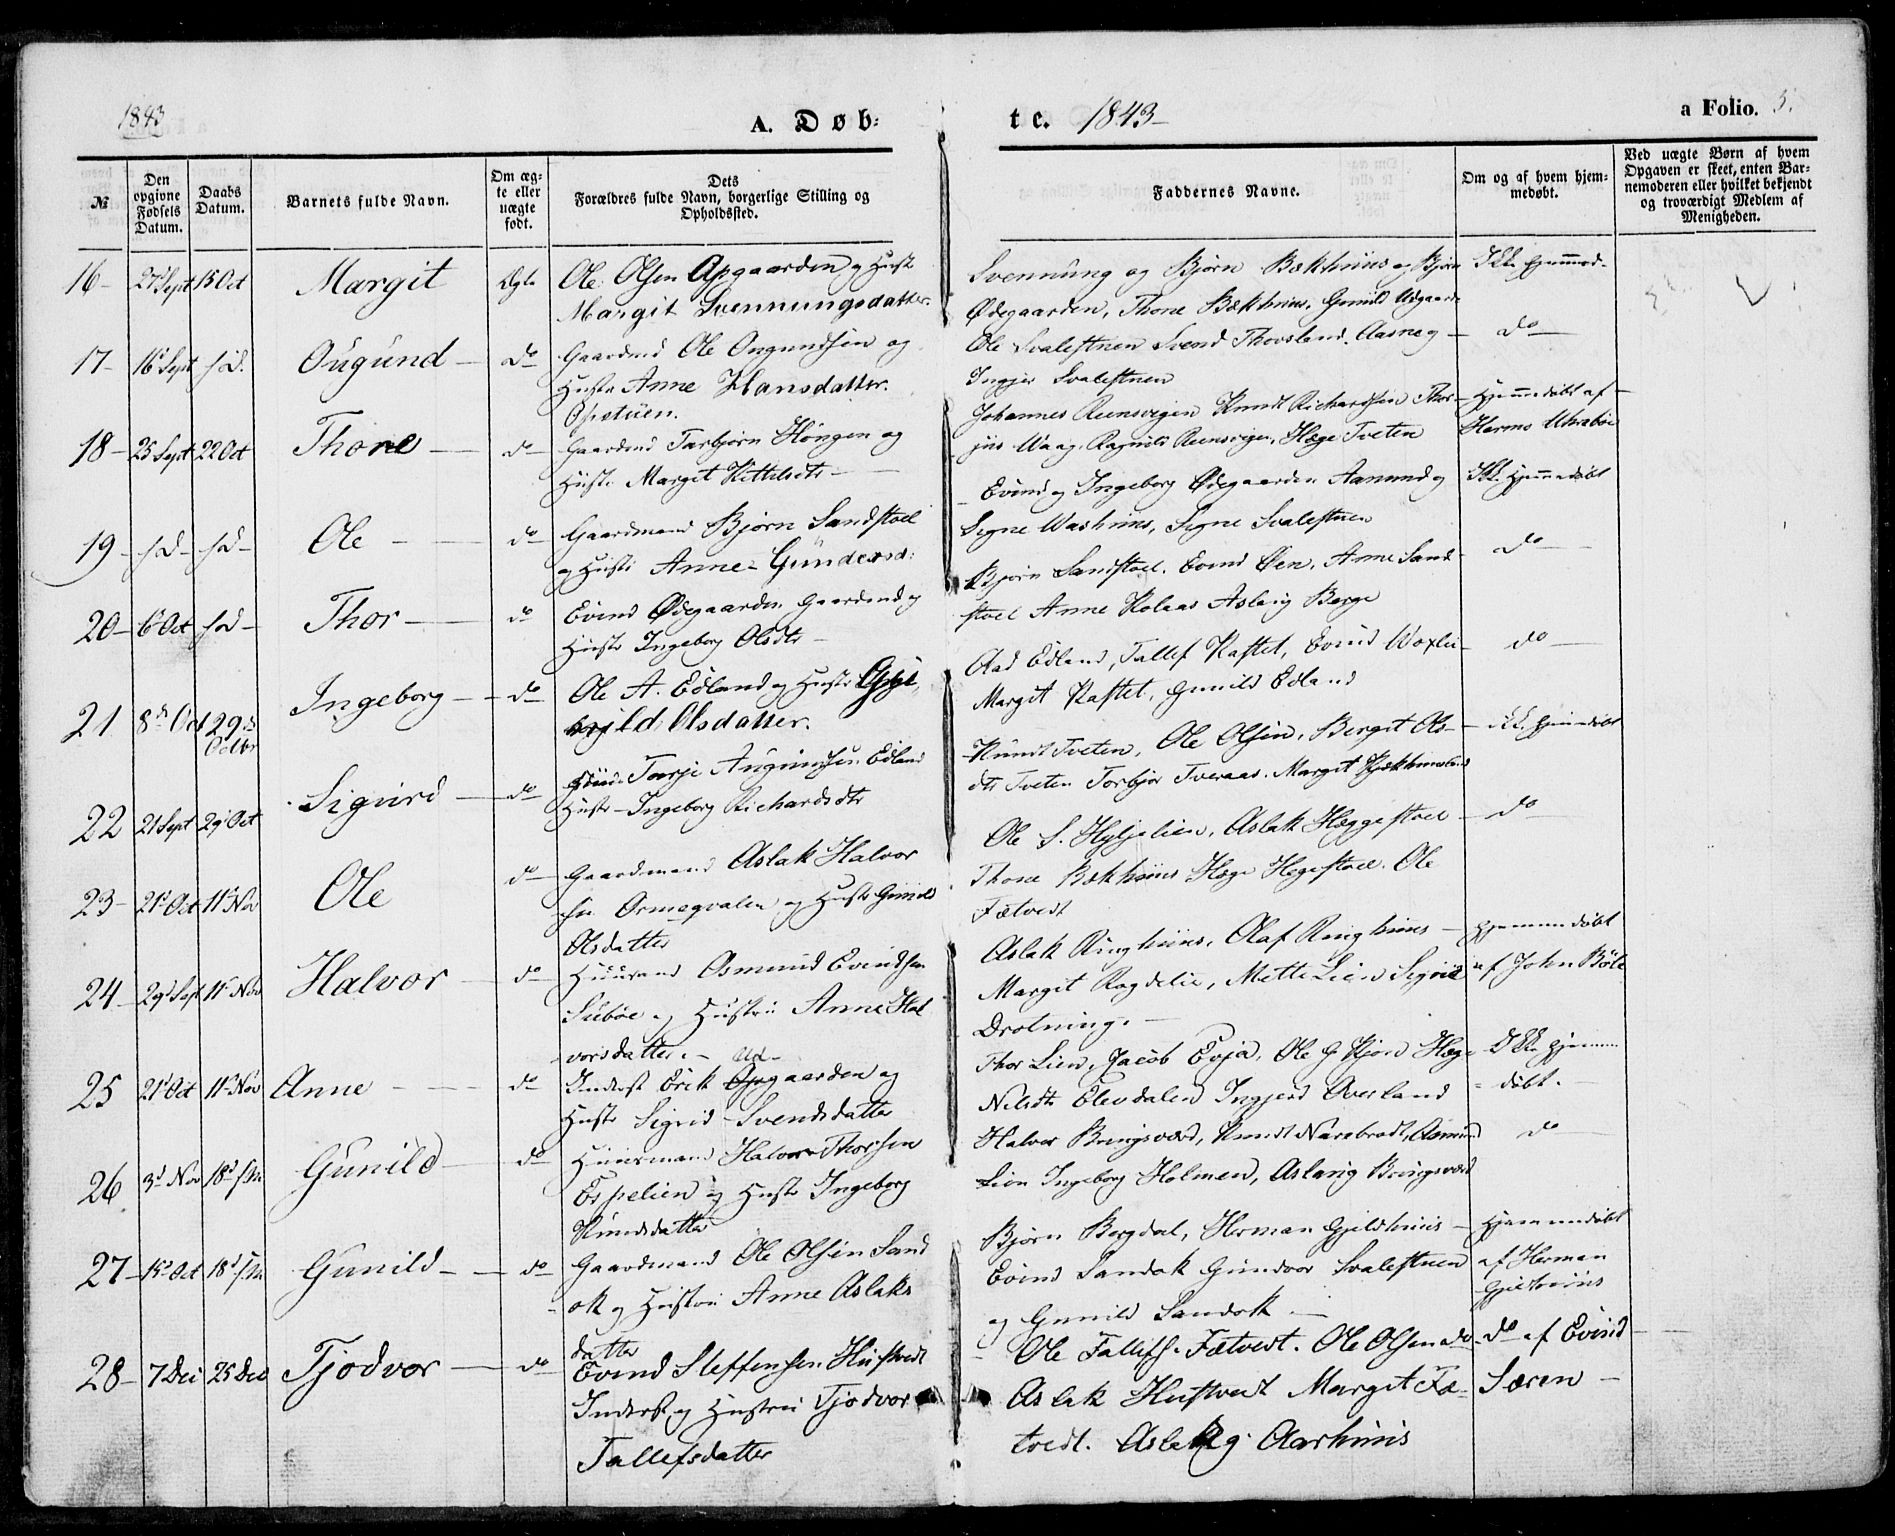 1843
A. Døb-
te. 1843
a Folio. 5.
№
Den opgivne Fødsels Datum.
Daabs Datum.
Barnets fulde Navn.
Om ægte eller uægte født.
Dets Forældres fulde Navn, borgerlige Stilling og Opholdssted.
Faddernes Navne.
Om og af hvem hjemmedøbt.
Ved uægte Børn af hvem Opgaven er skeet, enten Barnemoderen eller hvilket bekjendt og troværdigt Medlem af Menigheden.
16 27 Sept 15 Oct Margit Ægte Ole Olsen Opgaarden og Hustr
Margit Svennungsdatter.
Svennung og Bjørn Bækhuus og Bjørn
Ødegaarden, Thone Bækhuus, Gunild
17 16 Sept s.d. Ougund do Gaardmd Ole Ougundsen og
Hustr Anne Hansdatter
Ole Svalestuen Svend Thovsland. Aasne og
Ingjer Svalestuen
do
18 25 Sept 22 Oct Thone do Gaardmd Tarbjørn Høngen og
Hustr Margit Kittelsdtr
Johannes Reensvigen Knudt Richardsen Thor-
Ragnild Reensvigen, Hæge Tveten
Hjemmedøbt af
19 s.d. s.d. Ole do Gaardmand Bjørn Sandstoel
og Hustr Anne Gundersd:
Evind og Ingeborg Ødegaarden Aamund og
Signe Washuus, Signe Svalestuen
Ikke hjemmedøbt
20 6 Oct s.d. Thor do Evind Ødegaarden Gaardmd og
Hustr Ingeborg Olsdtr
Bjørn Sandstoel. Evind Øen, Anne Sand-
stoel Anne Kolaas Aslaug Berge
do
21 8d Oct 29d Octbr Ingeborg do Ole A. Edland og Hustr
Olsdatter.
Aad Edland, Tallef Kaftet, Evind
Margit Kaftet, Gunild Edland
do
22 21 Sept 29 Oct Sigurd do Tarje Augundsen Edland
Hustr Ingeborg Richardsdtr
Knudt Tveten, Ole Olsen, Bergit Ols-
dtr Tveten Torbjør Tveraas. Margit
Ikke hjemmedøbt
23 21d Oct 11 Nov Ole do Gaardmand Aslak Halvor
sen Ormegvalen og Hustr Gunild
Olsdatter
Ole S. Hyljelien, Aslak Heggestoel
Thone Bækhuus Hæge Hegestoel. Ole
Fætvedt
do
24 29 Sept 11 Nov Halvor do Huusmand Osmund Evindsen
Liebøe og Hustru Anne Hal
vorsdatter.
Aslak Ringhuus, Olaf Ringhuus
Margit Ragdelie, Mette Lien Sigrid
Drotning.
Hjemmedøbt
af John Bøle
25 21d Oct 11 Nov Anne do Inderst Erik Ud-gaarden og
Hustr Sigrid Svendsdatter
Thor Lien, Jacob Evja, Ole G Kjørn Hæge
Nelsdtr Elevdalen Ingjerd Overland
Ikke hjemme-
døbt.
26 3d Nov 18d Gunild do Huusmand Halvor Thorsen
Espelien og Hustr Ingeborg
Knudsdatter
Halvor Bringsværd, Knudt Narebrodt, Asmund
Lien Ingeborg Holmen, Aslaug Bringsværd
do
27 15 Oct 18d Gunild do Gaardmand Ole Olsen Sand
ok og Hustru Anne Aslaks
datter
Bjørn Bergdal, Herman Gjildhuus
Evind Sandok Gundvor Svalestuen
og Gunild Sandok
Hjemmedøbt
af Herman
Gjildhuus
28 7 Dec 25 Dec Tjodvor do Evind Steffensen Hustvedt
Inderst og Hustru Tjodvor
Tallefsdatter
Ole Tallefs. Fætvedt. Ole Olsen do
Aslak Hustvedt Margit Fæ-
tvedt. Aslaug Aarhuus
do af Evind
Særen